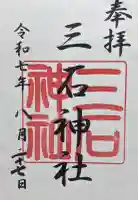 奉拝
三石神社
三石神社
令和七年八月二十七日